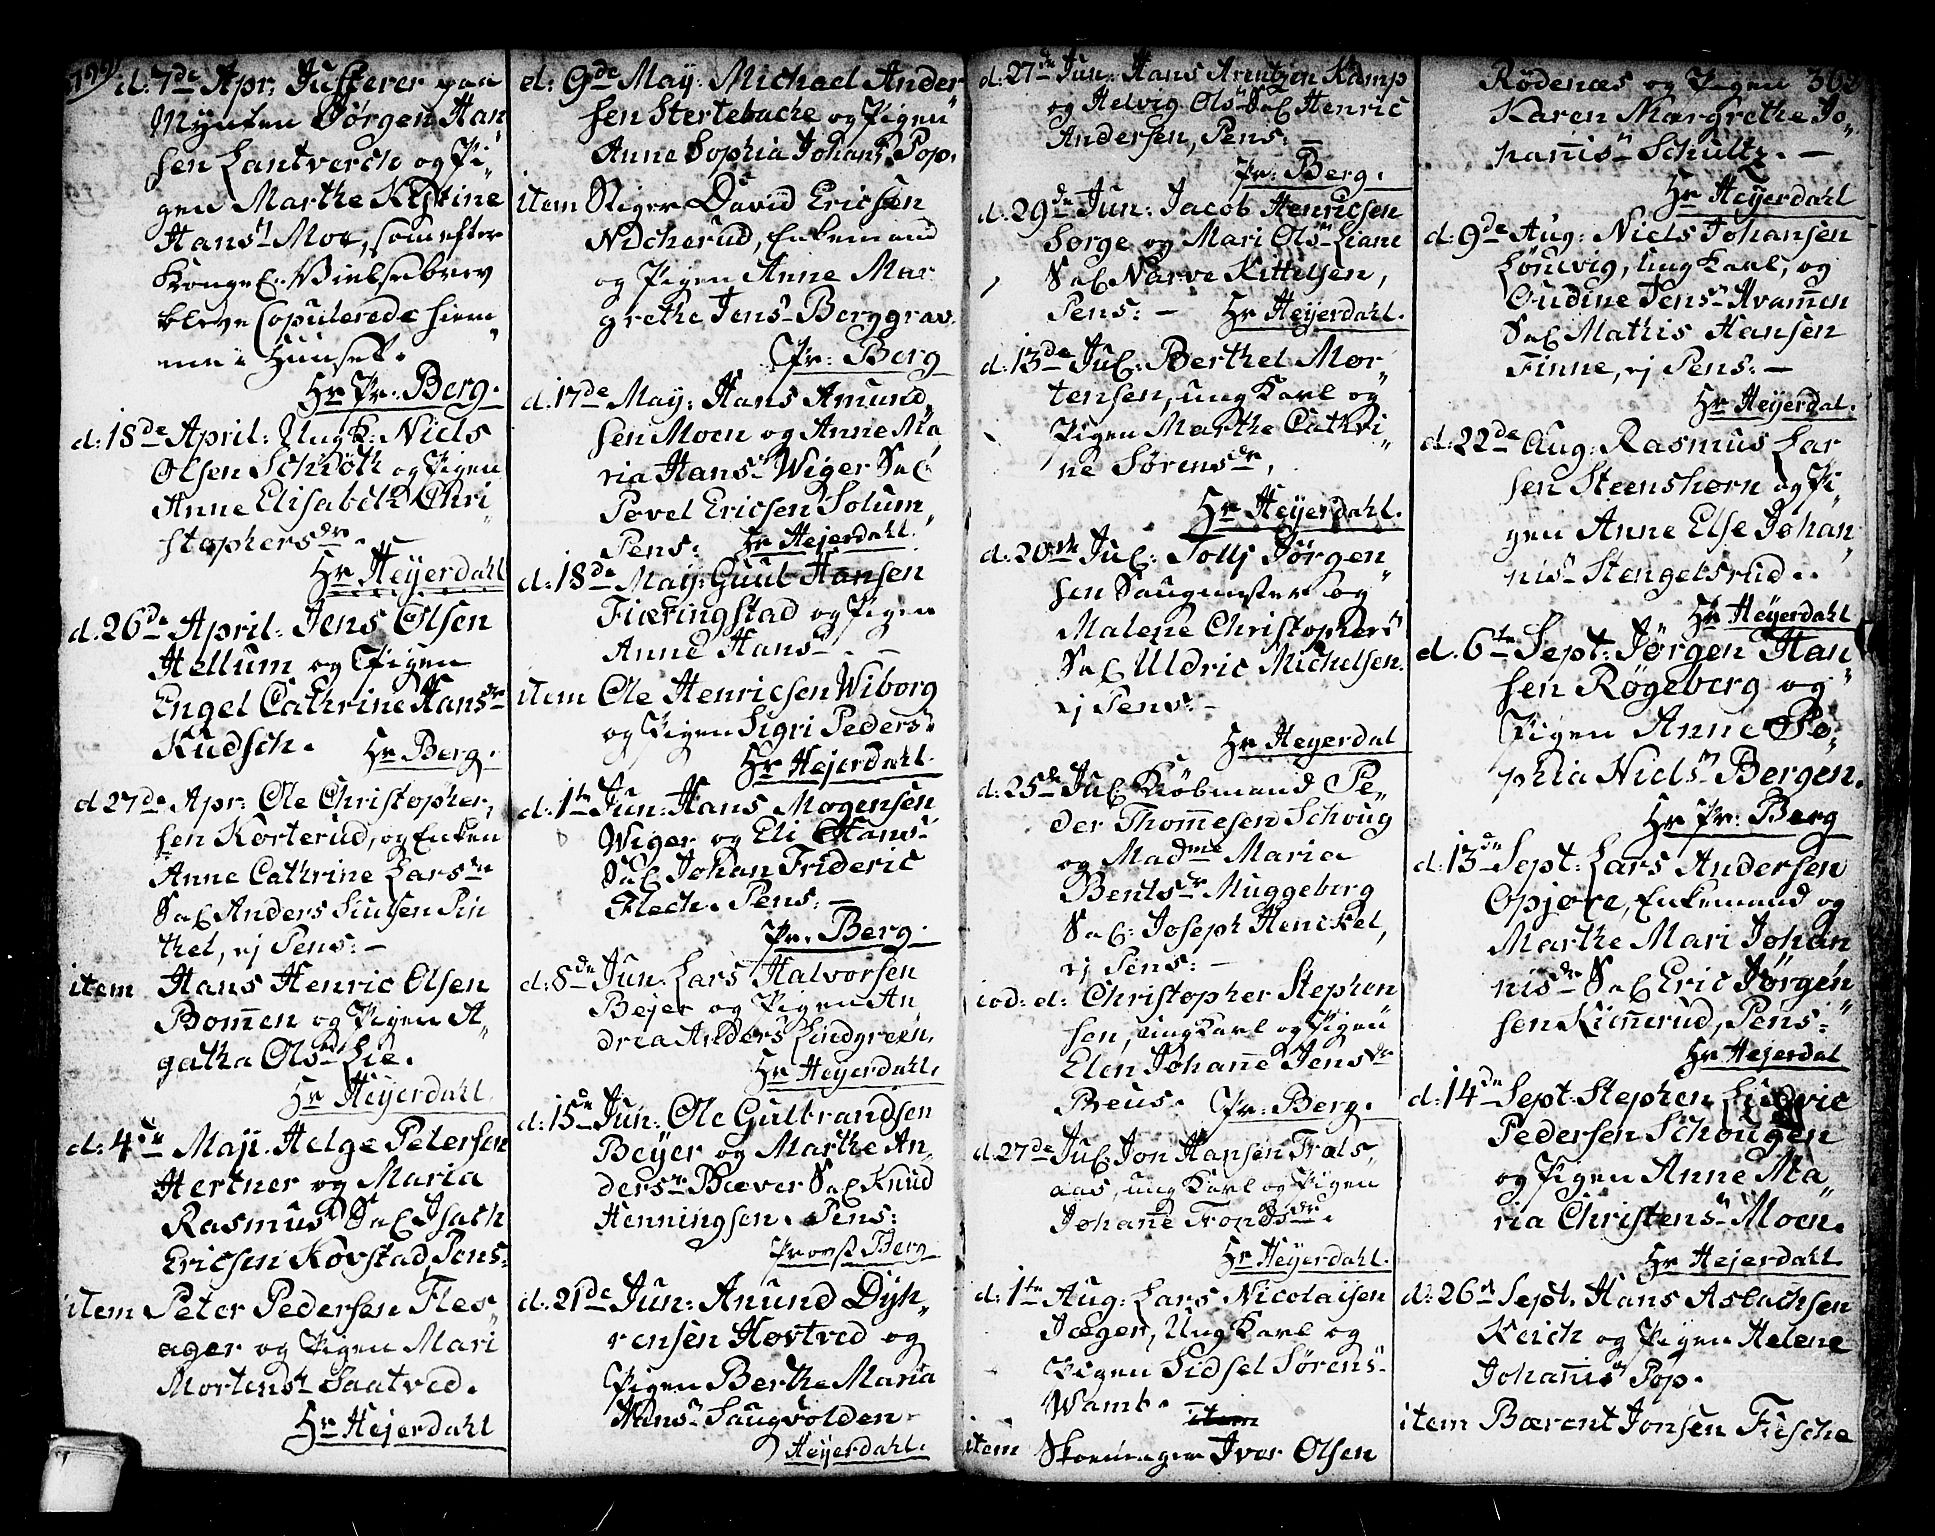 1799
d: 7de Apr: Jufferer paa
Mynten Jørgen Han„
sen Lantverch og Pi„
gen Marthe Kistine
Hans Moe, som efter
Konge E: Vielsebrev
bleve Copulerede hiem„
me i Huuset.
Hr Pr: Berg.
d: 18de April: Ungk: Niels
Olsen Schiøth og Pigen
Anne Elisabeth Chri„
stophersdr.
Hr Heyerdahl
d. 26de April: Jens Olsen
Hellum og Pigen
Engel Cathrine Hansdr
Kudsch. Hr Berg.
d 27de Apr: Ole Christopher„
sen Korterud, og Enken
Anne Cathrine Larsdr
Sal Anders Simensen Pin
thel, ej Pens: –
item Hans Henric Olsen
Bommen og Pigen A„
gatha Olsdr Lie.
Hr Heyerdahl.
d: 4de Maji. Helge Petersen
Hertner og Maria
Rasmusdr Sal Isach
Ericsen Kovstad, Pens:
item Peter Pedersen Fles„
ager og Pigen Mari
Mortensdr Saatved.
Hr Hejerdahl
d: 9de May: Michael Ander„
sen Stertebache og Pigen
Anne Sophia Johans Pop.
item Stiger David Ericsen
Nicherud, Enkemand
og Pigen Anne Mar„
grethe Jens Berggrav.
Pr: Berg
d. 17de May: Hans Amund„
sen Moen og Anne Ma„
ria Hans Wiger Sal
Povel Ericsen Solum,
Pens: Hr Hejerdahl.
d: 18de May: Guul Hansen
Fiæringstad og Pigen
Anne Hans –
item Ole Henricsen Wiborg
og Pigen Sigri Peders
Hr Hejerdahl.
d: 1te Jun: Hans Mogensen
Wiger og Eli Hans
Sal Johan Frideric
Flech. Pens: –
Pr. Berg.
d: 8de Jun: Lars Halvorsen
Bejer og Pigen An
drea Anders Lindgreen,
Hr Heyerdahl.
d: 15de Jun: Ole Gulbrandsen
Beyer og Marthe An„
dersdr Bæver Sal Knud
Henningsen. Pens:
Provst Berg
d. 21de Jun: Anund Dyh„
rensen Hovtved og
Pigen Berthe Maria
Hans Saugvolden
Heyerdahl.
d: 27de Jun: Hans Arentzen Kamp
og Helvig Ols Sal Henric
Andersen, Pens: –
Pr: Berg.
d. 29de Jun: Jacob Henricsen
Sorge og Mari Ols Liane
Sal Narve Kittelsen,
Pens: – Hr Heyerdahl.
d. 13de Jul: Berthel Mor„
tensen, ung Karl og
Pigen Marthe Cathri„
ne Sørensdr,
Hr Heyerdahl.
d: 20de Jul: Tolly Jørgen„
sen Saugmester og
Malene Christophers
Sal Uldric Michelsen.
ej Pens: –
Hr Heyerdal
d: 25de Jul Købmand Pe„
der Thommesen Schoug
og Madme Maria
Bentsdr Muggeberg
Sal: Joseph Henckel,
ej Pens: –
eod: d: Christopher Stephen
sen, ung Karl og Pigen
Elen Johanne Jensdr
Beus. Pr: Berg.
d. 27de Jul Jon Hansen Frøls„
aas, ung Karl og Pigen
Johanne Trondsdr.
Hr Heyerdahl.
d: 1te Aug: Lars Nicolaisen
Jæger, Ung Karl og
Pigen Sidsel Sørens
Wamb. –
item Skoemager Iver Olsen
Rødenæs og Pigen 362
Karen Margrethe Jo„
hannis Schultz. –
Hr Heyerdahl
d: 9de Aug: Niels Johansen
Løulvig, ung Karl, og
Oudine Jens Hvammen
Sal Mathis Hansen
Finne, ej Pens: –
Hr Heyerdal.
d: 22de Aug: Rasmus Lar
sen Steenshorn og Pi„
gen Anne Else Johan„
nis Stengelsrud.
Hr Heyerdahl
d. 6te Sept: Jørgen Han„
sen Røgeberg og
Pigen Anne So„
phia Niels Bergen.
Hr Pr: Berg
d: 13de Sept: Lars Andersen
Opjore, Enkemand og
Marthe Mari Johan
nisdr Sal Eric Jørgen„
sen Kimmerud, Pens:
Hr Hejerdal
d: 14de Sept. Stephen Ludvic
Pedersen Schougen
og Pigen Anne Ma„
ria Christens Moen.
Hr Hejerdahl.
d: 26de Sept. Hans Asbachsen
Keich og Pigen Helene
Johannis Pop.
item Bærent Jonsen Fusche